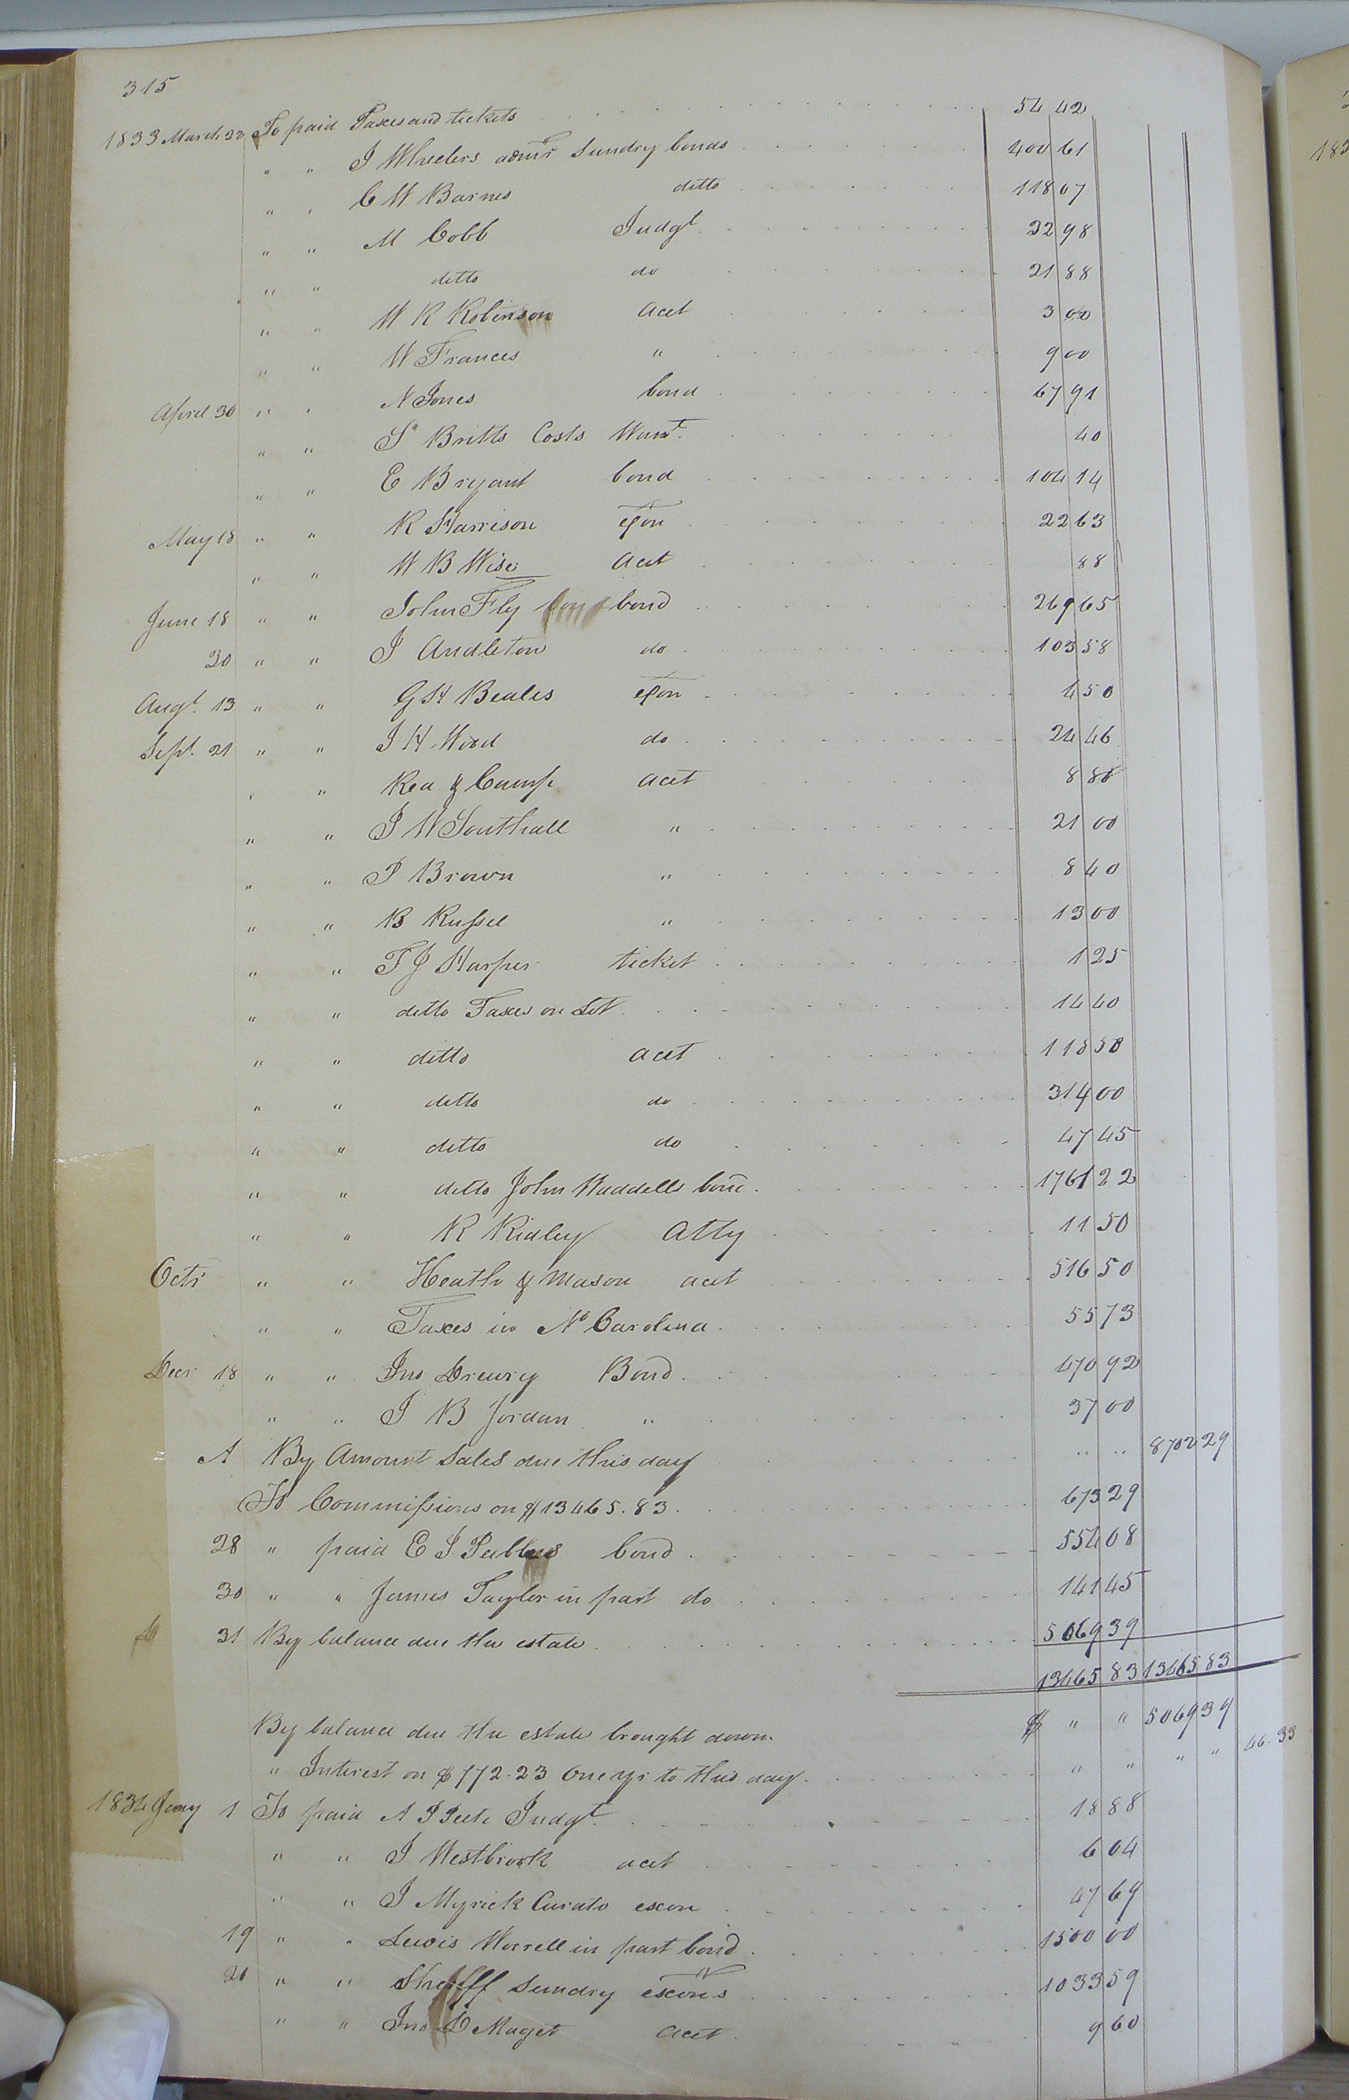 315
1833 March 22 To paid Taxes and tickets 54 42
" " J Wheelers admr Sundry bonds 400 61
" " C W Barnes ditto 118 07
" " M Cobb Judgt 32 98
" " ditto do 21 88
" " W R Robinson acct 3 00
" " W Frances " 9 00
April 30 " " N Jones bond 67 91
" " Sl Britts Costs Warrt 40
" " E Bryant bond 104 14
May 18 " " R Harrison exon 22 63
" " W B Wise acct 88
June 18 " " John Fly bond 269 65
30 " " J Andleton do 103 58
Augt. 13 " " G H Beales exon 4 50
Sept. 21 " " J H Wood do 24 46
" " Rea & Camp acct 8 88
" " J W Southall " 21 00
" " J Brown " 8 40
" " B Russel " 13 00
" " T J Harper ticket 1 25
" " ditto Taxes on Lot 14 40
" " ditto acct 118 58
" " ditto do 314 00
" " ditto do 47 45
" " ditto John Waddells bond 1761 22
" " R Ridley Atty 11 50
Octr " " Heath & Mason acct 516 50
" " Taxes in No Carolina 55 73
Decr 18 " " Jno Drewry Bond 470 92
" " J B Jordan " 37 00
A By Amount Sales due this day " " 8702 29
To Commissions on $13465.83. 673 29
28 " paid E J Peebles bond 554 08
30 " " James Taylor in part do 141 45
31 By balance due the estate 5069 39
13465 83 13465 83
By balance due the estate brought down. $ " " 5069 39
" Interest on $772.23 One yr to this day. " " " " 46.33
1834 Jany 1 To paid A P Peete Judgt. 18 88
" " J Westbrook acct 6 04
" " J Myrick Curato exon 47 69
19 " " Lewis Worrell in part bond 1500 00
20 " " Sheriff Sundry exons 1033 59
" " Jno D Maget acct 9 60
183